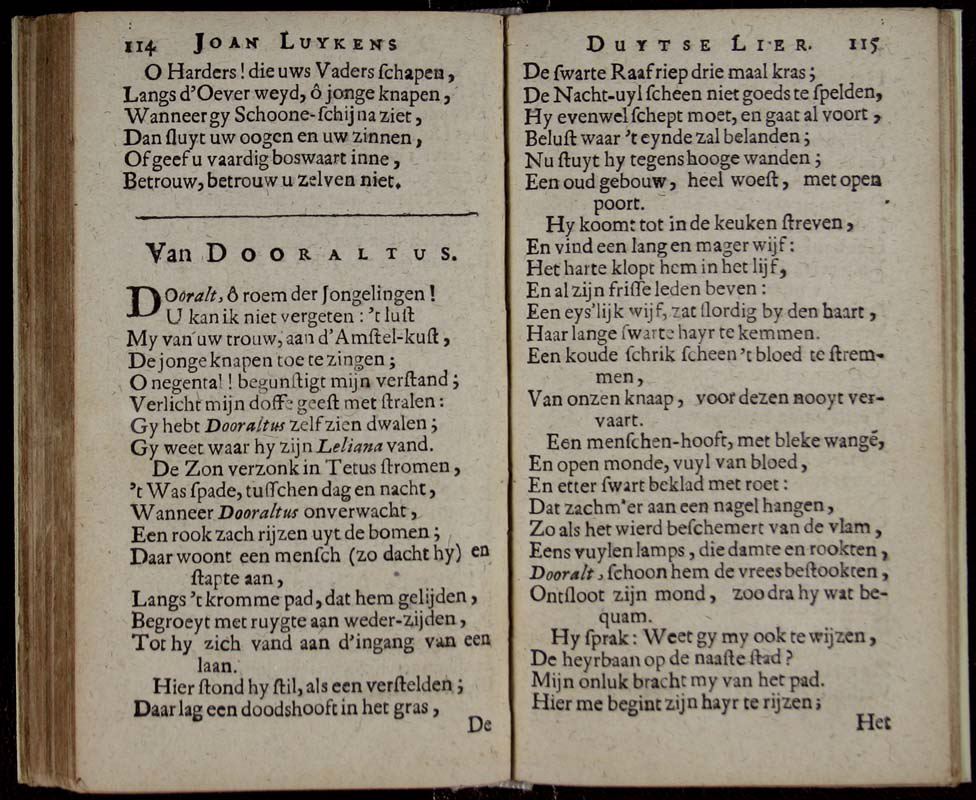 114 JOAN LUYKENS
O Harders! die uws Vaders ſchapen,
Langs d'Oever weyd, ô jonge knapen,
Wanneer gy Schoone-ſchijn aziet,
Dan ſluyt uw oogen en uw zinnen,
Of geef u vaardig boswaart inne,
Betrouw, betrouw u zelven niet.
Van DOORALTUS.
DOoralt, ô roem der Jongelingen!
U kan ik niet vergeten: 't luſt
My van uw trouw, aan d'Amſtel-kuſt,
De jonge knapen toe te zingen;
O negental! begunſtigt mijn verſtand;
Verlicht mijn doffe geeſt met ſtralen:
Gy hebt Dooraltus zelf zien dwalen;
Gy weet waar hy zijn Leliana vand.
De Zon verzonk in Tetus ſtromen,
't Was ſpade, tuſſchen dag en nacht,
Wanneer Dooraltus onverwacht,
Een rook zach rijzen uyt de bomen;
Daar woont een menſch (zo dacht hy) en
ſtapte aan,
Langs 't kromme pad, dat hem gelijden,
Begroeyt met ruygte aan weder-zijden,
Tot hy zich vand aan d'ingang van een
laan.
Hier ſtond hy ſtil, als een verſtelden;
Daar lag een doodshooft in het gras,
De
DUYTSE LIER. 115
De ſwarte Raaf riep drie maal kras;
De Nacht-uyl ſcheen niet goeds te ſpelden,
Hy evenwel ſchept moet, en gaat al voort,
Beluſt waar 't eynde zal belanden;
Nu ſtuyt hy tegens hooge wanden;
Een oud gebouw, heel woeſt, met open
poort.
Hy koomt tot in de keuken ſtreven,
En vind een lang en mager wijf:
Het harte klopt hem in het lijf,
En al zijn friſſe leden beven:
Een eys'lijk wijf, zat ſlordig by den haart,
Haar lange ſwarte hayr te kemmen.
Een koude ſchrik ſcheen 't bloed te ſtrem-
men,
Van onzen knaap, voor dezen nooyt ver-
vaart.
Een menſchen-hooft, met bleke wangē,
En open monde, vuyl van bloed,
En etter ſwart beklad met roet:
Dat zach m'er aan een nagel hangen,
Zo als het wierd beſchemert van de vlam,
Eens vuylen lamps, die damte en rookten,
Dooralt, ſchoon hem de vrees beſtookten,
Ontſloot zijn mond, zoo dra hy wat be-
quam.
Hy ſprak: Weet gy my ook te wijzen,
De heyrbaan op de naaſte ſtad?
Mijn onluk bracht my van het pad.
Hier me begint zijn hayr te rijzen;
Het